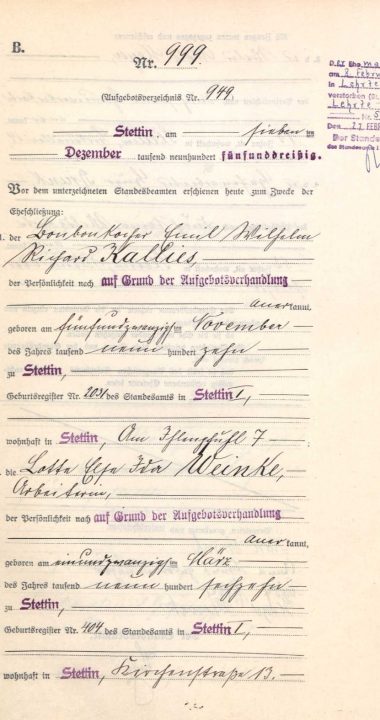 B.
Nr. 999
(Aufgebotsverzeichnis Nr. 949
Stettin, am sieben ten
Dezember tausend neunhundert fünfunddreißig.
Vor dem unterzeichneten Standesbeamten erschienen heute zum Zwecke der
Eheschließung:
1. der Bonbonkocher Emil Wilhelm
Richard Kallies,
der Persönlichkeit nach auf Grund der Aufgebotsverhandlung
aner kannt,
geboren am fünfundzwanzigsten November
des Jahres tausend neun hundert zehn
zu Stettin,
Geburtsregister Nr. 2031 des Standesamts in Stettin I,
wohnhaft in Stettin, Am 7
die Lotte Else Ida Weinke,
Arbeiterin,
der Persönlichkeit nach auf Grund der Aufgebotsverhandlung
aner kannt,
geboren am einundzwanzigsten März
des Jahres tausend neun hundert sechzehn
zu Stettin,
Geburtsregister Nr. 404 des Standesamts in Stettin I,
wohnhaft in Stettin, Kirchenstraße 13.
am 2. Febru
in Lehrte
verstorben
Lehrte
Nr. 5
Den 27. FEB
Der Stande